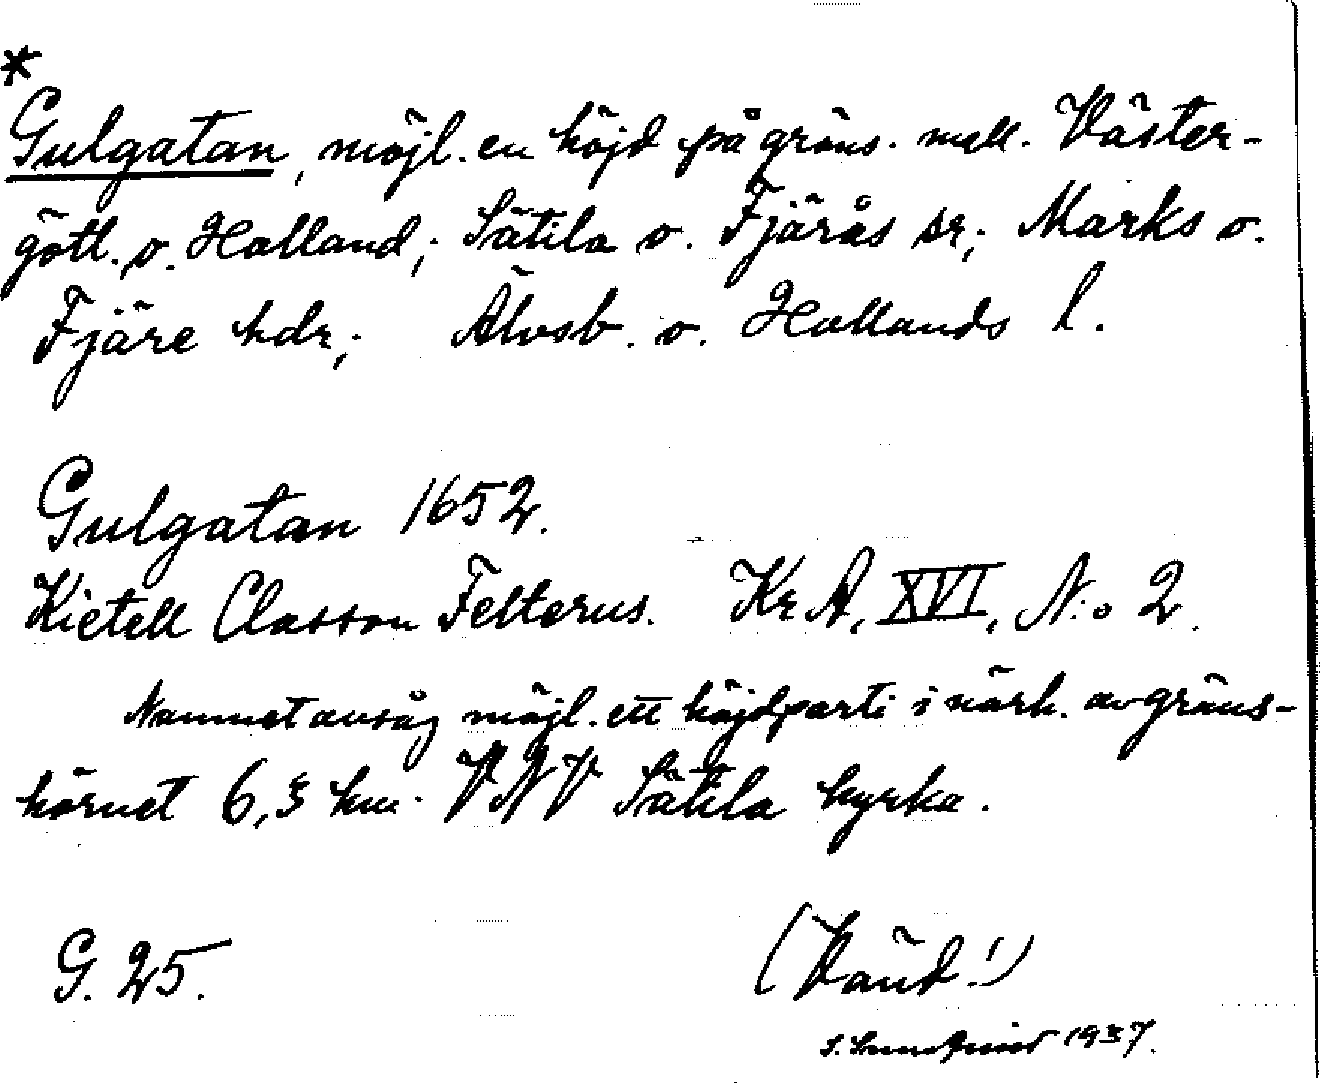 *
Gulgatan, möjl. en höjd på gräns. mell. Väster-
götl. o. Halland; Sätila o. Fjärås sr; Marks o.
Fjäre hdr; Älvsb. o. Hallands l.
Gulgatan 1652.
Kietell Classon Felterus. Kr A, XVI, N:o 2.
Namnet avsåg möjl. ett höjdparti i närh. av gräns-
hörnet 6,3 km. VNV Sätila kyrka.
G. 25.
(Vänd!)
S. 1937.